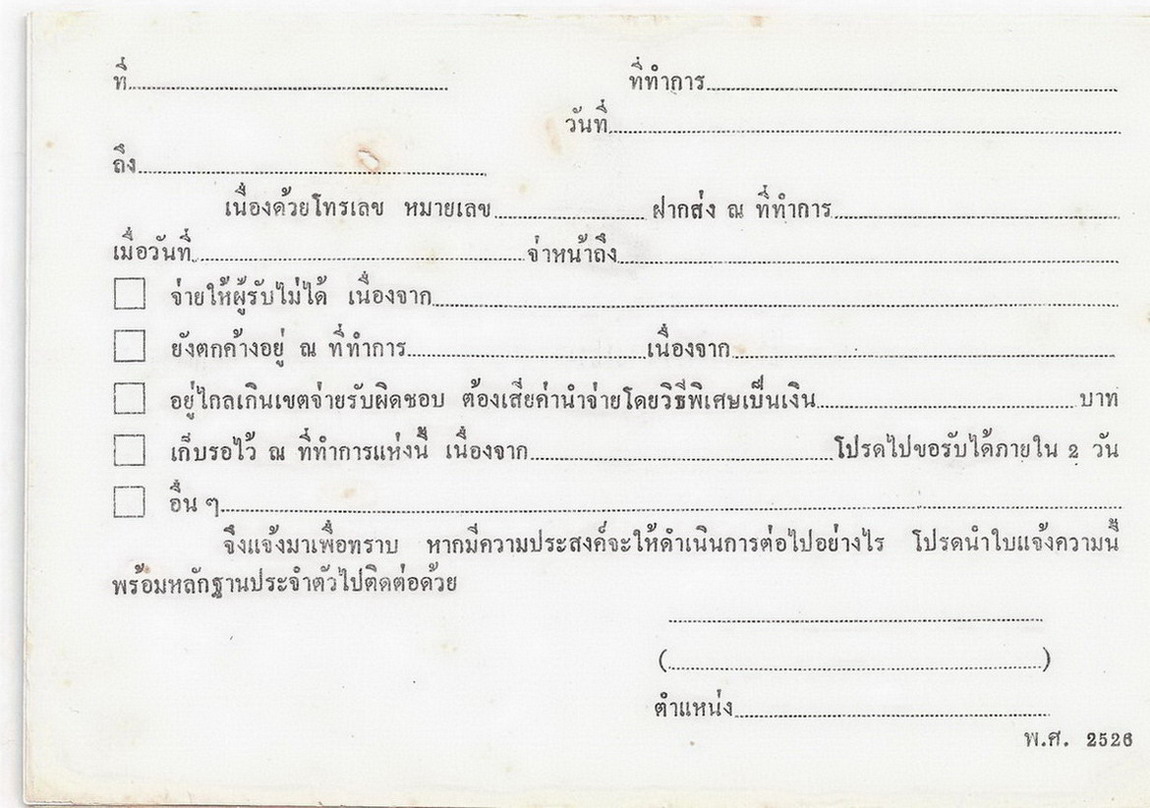 ที่.......................... ที่ทำการ..........................
วันที่..........................
ถึง..........................
เนื่องด้วยโทรเลข หมายเลข.......................... ฝากส่ง ณ ที่ทำการ..........................
เมื่อวันที่..........................จ่าหน้าถึง..........................
จ่ายให้ผู้รับไม่ได้ เนื่องจาก..........................
ยังตกค้างอยู่ ณ ที่ทำการ..........................เนื่องจาก..........................
อยู่ไกลเกินเขตจ่ายรับผิดชอบ ต้องเสียค่านำจ่ายโดยวิธีพิเศษเป็นเงิน..........................บาท
เก็บรอไว้ ณ ที่ทำการแห่งนี้ เนื่องจาก..........................โปรดไปขอรับได้ภายใน 2 วัน
อื่น ๆ..........................
จึงแจ้งมาเพื่อทราบ หากมีความประสงค์จะให้ดำเนินการต่อไปอย่างไร โปรดนำใบแจ้งความนี้
พร้อมหลักฐานประจำตัวไปติดต่อด้วย
..........................
(..........................)
ตำแหน่ง..........................
พ.ศ. 2526